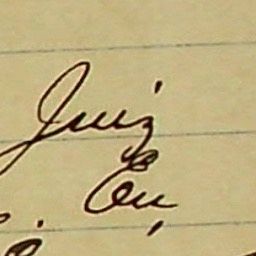 Juiz
Eu,